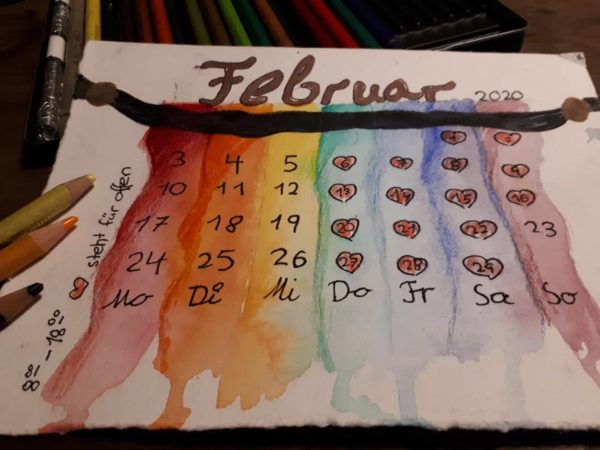 Februar 2020
1 2
3 4 5 6 7 8 9
10 11 12 13 14 15 16
17 18 19 20 21 22 23
24 25 26 27 28 29
Mo Di Mi Do Fr Sa So
steht für offen
8⁰⁰ - 18⁰⁰